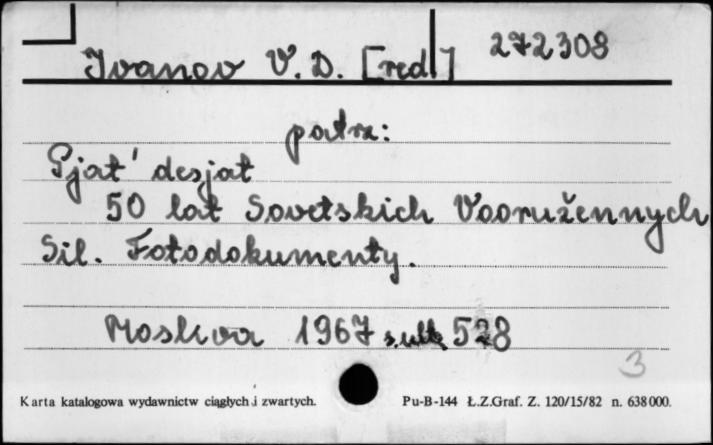 Ivanov V. D. [red] 272308
patrz:
Pjat' desjat
50 lat Sovetskich Vooružennych
Sil. Fotodokumenty.
Moskva 1967 528
3
Karta katalogowa wydawnictw ciągłych i zwartych. Pu-B-144 Ł.Z.Graf. Z. 120/15/82 n. 638000.